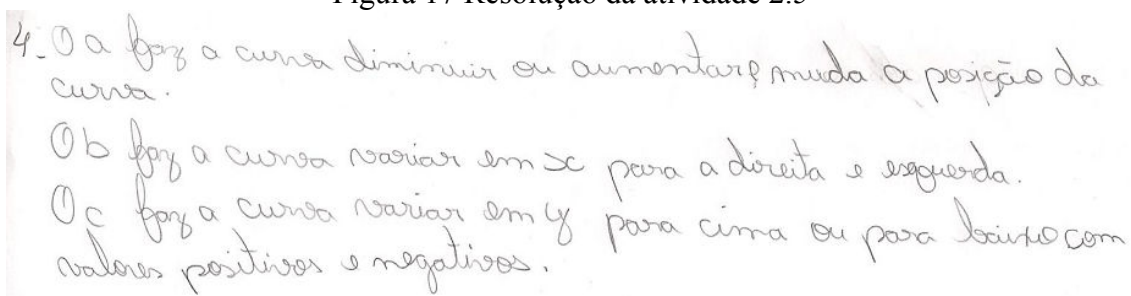 Figura 17 Resolução da atividade 2.3
4- O a faz a curva diminuir ou aumentar e muda a posição da
curva.
O b faz a curva variar em x para a direita e esquerda.
O c faz a curva variar em y para cima ou para baixo com
valores positivos e negativos.